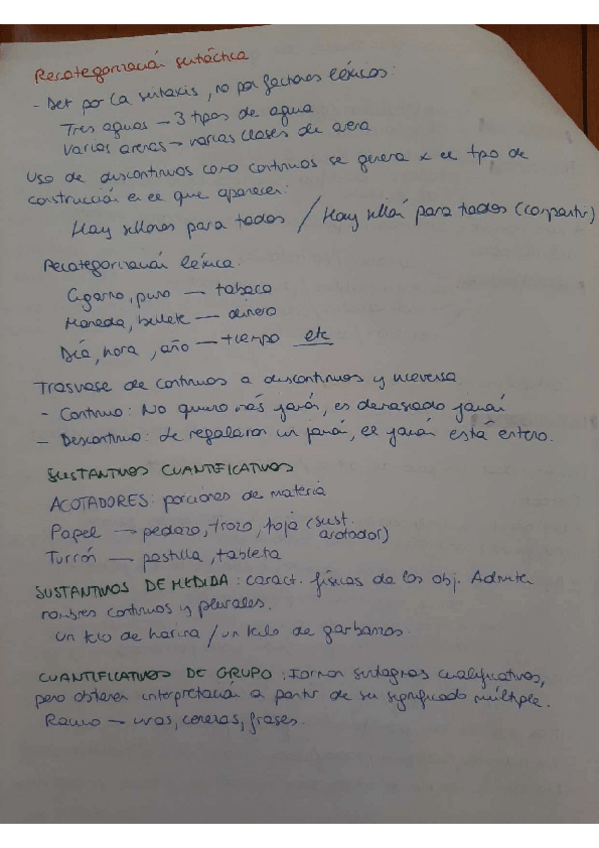 Recategorización sintáctica
- Det por la sintaxis, no por factores léxicos:
Tres aguas — 3 tipos de agua
Varias arenas — varias clases de arena
Uso de discontinuos como continuos se genera x el tipo de
construcción en el que aparecen:
Hay sillones para todos / Hay sillón para todos (compartir)
Recategorización léxica:
Cigarro, puro — tabaco
Moneda, billete — dinero
Día, hora, año — tiempo etc
Trasvase de continuos a discontinuos y viceversa
- Continuo: No quiero más jamón, es demasiado jamón
- Discontinuo: Le regalaron un jamón, el jamón está entero.
SUSTANTIVOS CUANTIFICATIVOS
ACOTADORES: porciones de materia
Papel → pedazo, trozo, hoja (sust. acotador)
Turrón — pastilla, tableta
SUSTANTIVOS DE MEDIDA: caract. físicas de los obj. Admiten
nombres continuos y plurales.
Un kilo de harina / un kilo de garbanzos.
CUANTIFICATIVOS DE GRUPO: Forman sintagmas cualificativos,
pero obtienen interpretación a partir de su significado múltiple.
Ramo → uvas, cerezas, frases.